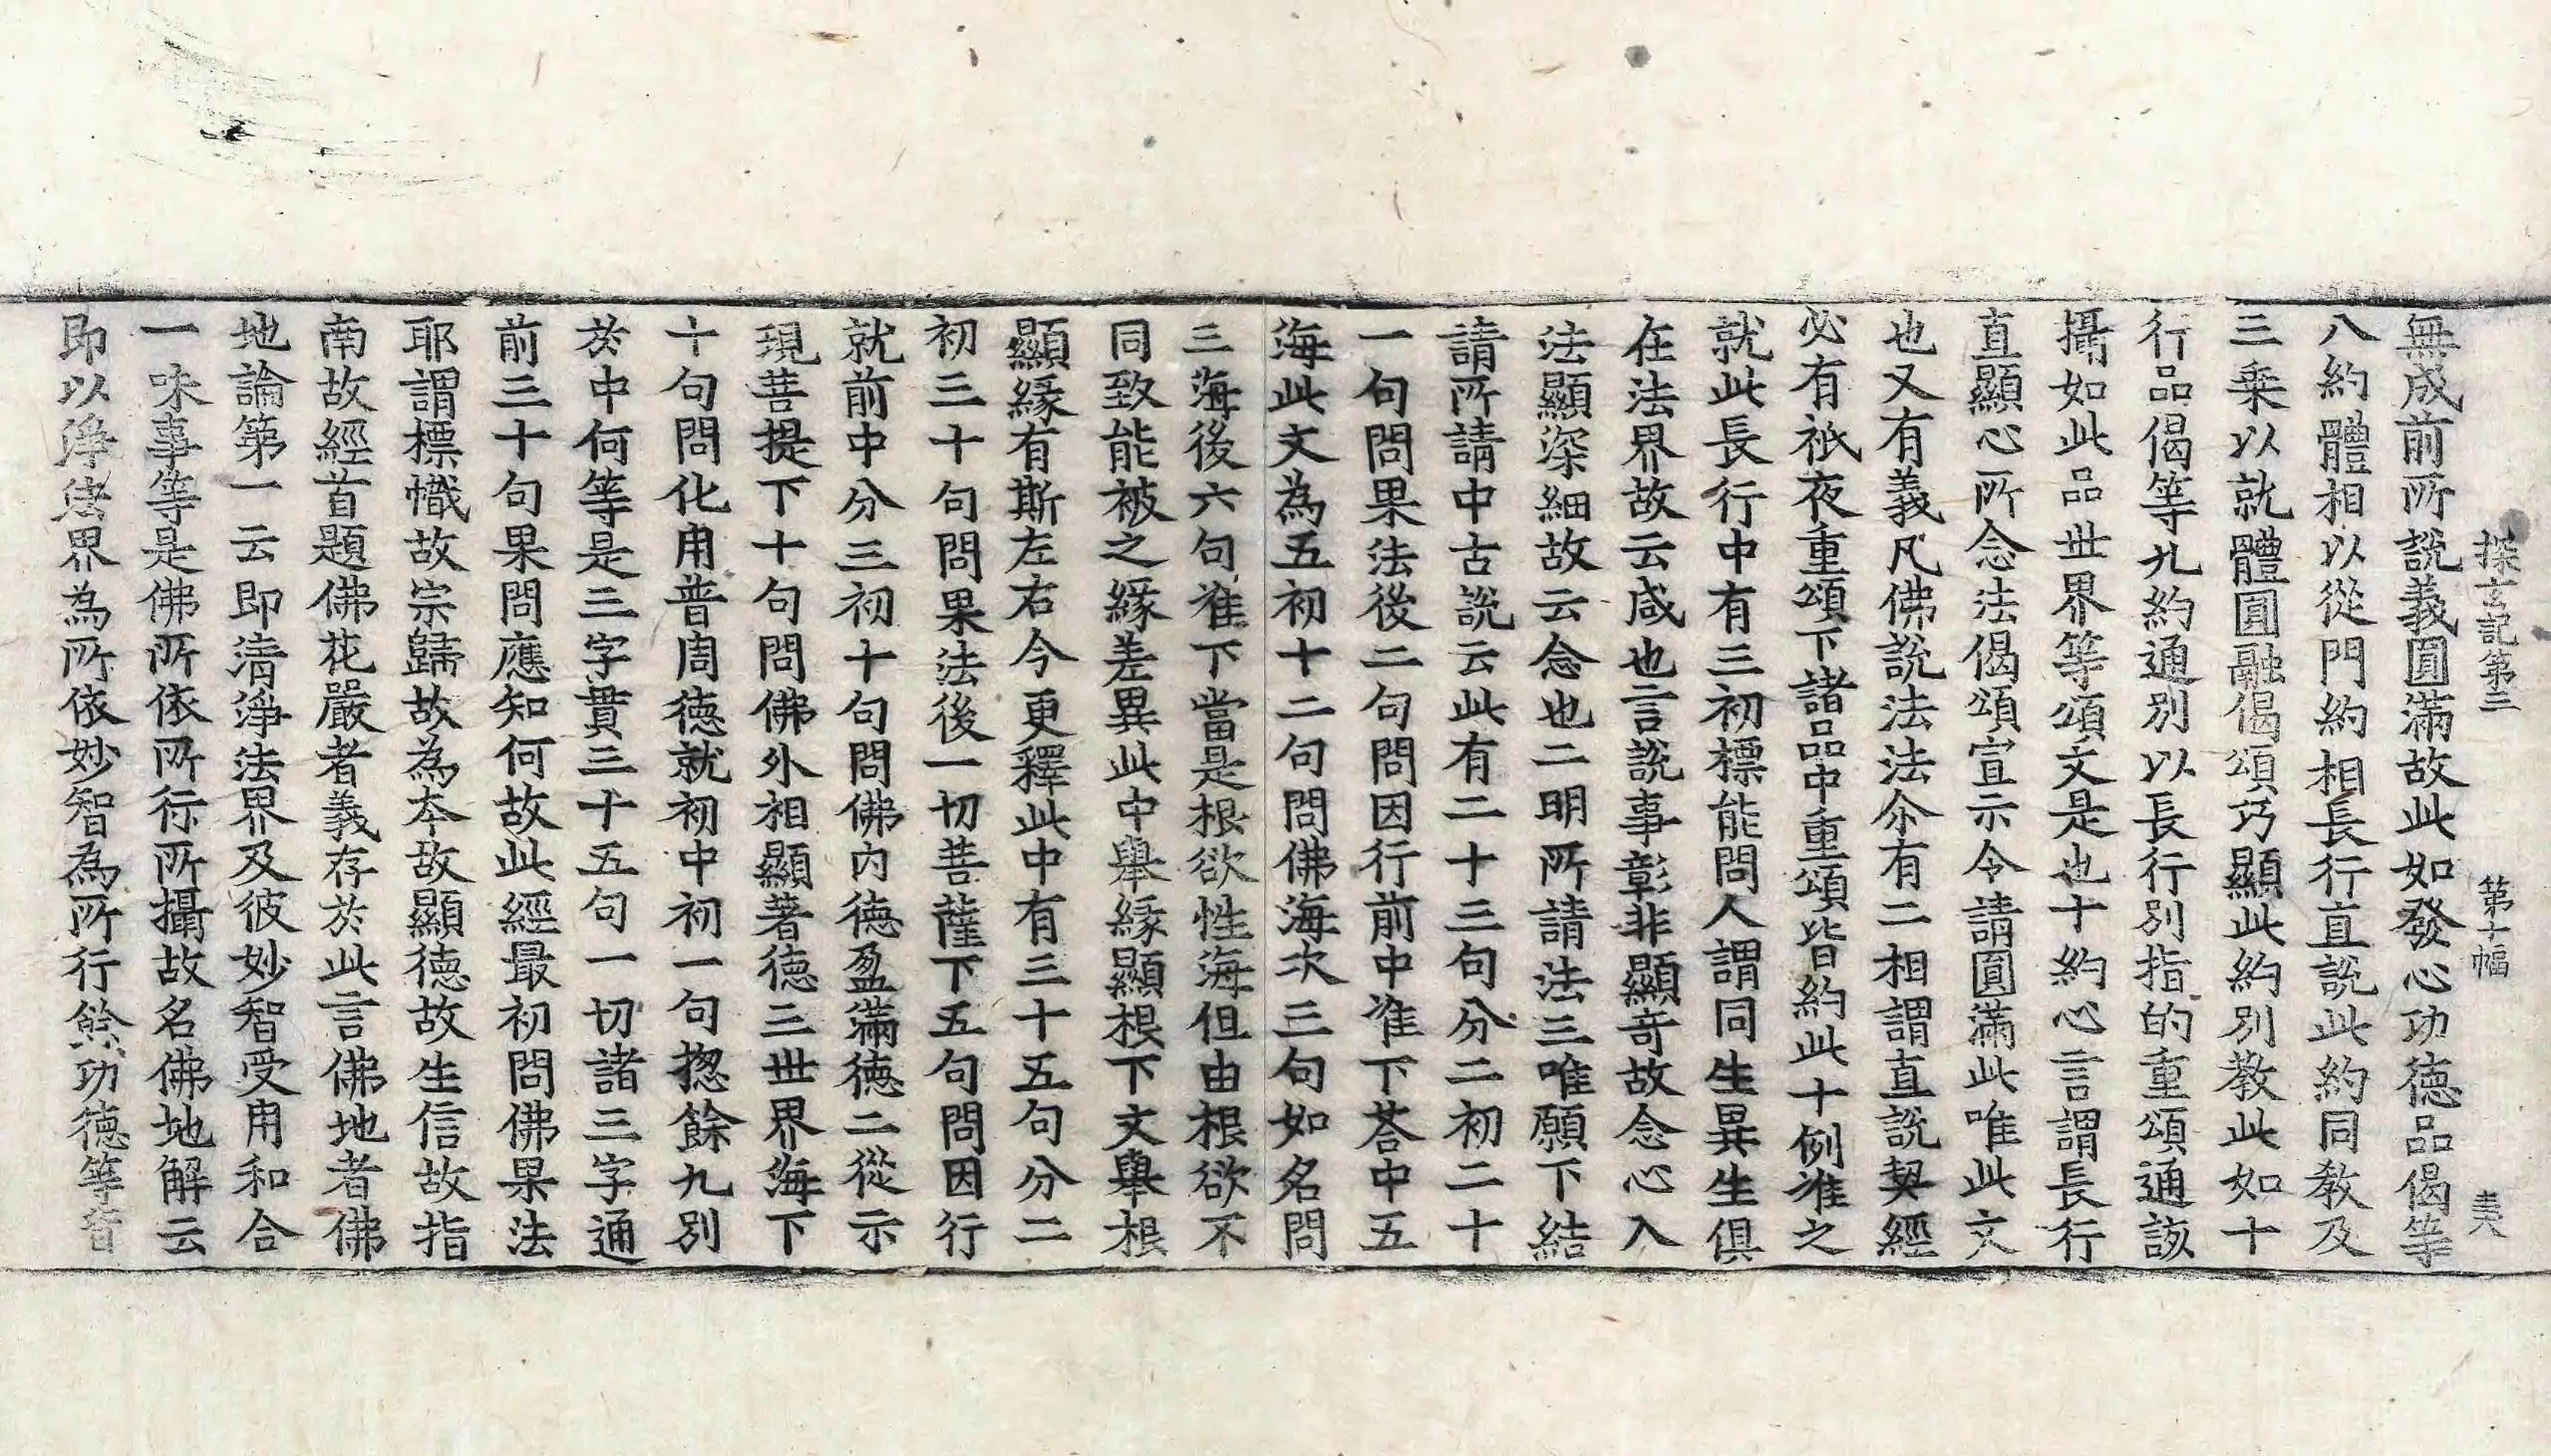 探玄記第三　第十幅　夫
無成前所說義圓滿故此如發心功德品偈等
八約體相以從門約相長行直說此約同教及
三乗以就體圓融偈頌乃顯此約別教此如十
行品偈等九約通別以長行別指的重頌通該
攝如此品世界等頌文是也十約心言謂長行
直顯心所念法偈頌宣示令請圓滿此唯此文
也又有義凡佛說法法尒有二相謂直說契經
必有祇夜重頌下諸品中重頌皆約此十例准之
就此長行中有三初標能問人謂同生異生俱
在法界故云咸也言說事彰非顯奇故念心入
法顯深細故云念也二明所請法三唯願下結
請所請中古說云此有二十三句分二初二十
一句問果法後二句問因行前中准下荅中五
海此文為五初十二句問佛海次三句如名問
三海後六句准下當是根欲性海但由根欲不
同致能被之緣差異此中舉緣顯根下文舉根
顯緣有斯左右今更釋此中有三十五句分二
初三十句問果法後一切菩薩下五句問因行
就前中分三初十句問佛內德盈滿德二從示
現菩提下十句問佛外相顯著德三世界海下
十句問化用普周德就初中初一句揔餘九別
於中何等是三字貫三十五句一切諸三字通
前三十句果問應知何故此經最初問佛果法
耶謂標幟故宗歸故為本故顯德故生信故指
南故經首題佛花嚴者義存於此言佛地者佛
地論第一云即清淨法界及彼妙智受用和合
一味事等是佛所依所行所攝故名佛地解云
即以淨法界為所依妙智為所行餘功德等皆